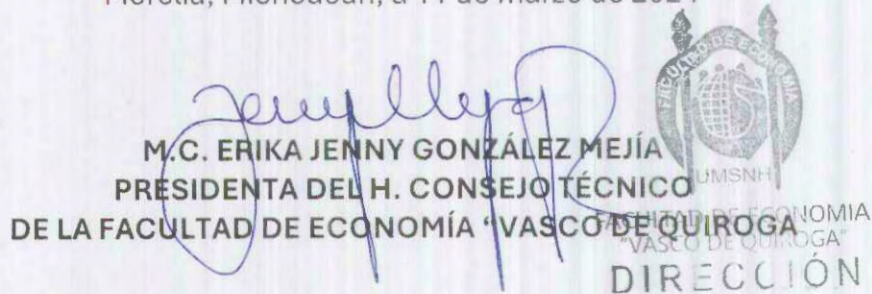 Morelia, Michoacán, a 11 de marzo de 2024
M.C. ERIKA JENNY GONZÁLEZ MEJÍA
PRESIDENTA DEL H. CONSEJO TÉCNICO
DE LA FACULTAD DE ECONOMÍA "VASCO DE QUIROGA
FACULTAD DE ECONOMIA
UMSNH
FACULTAD DE ECONOMIA
"VASCO DE QUIROGA"
DIRECCIÓN